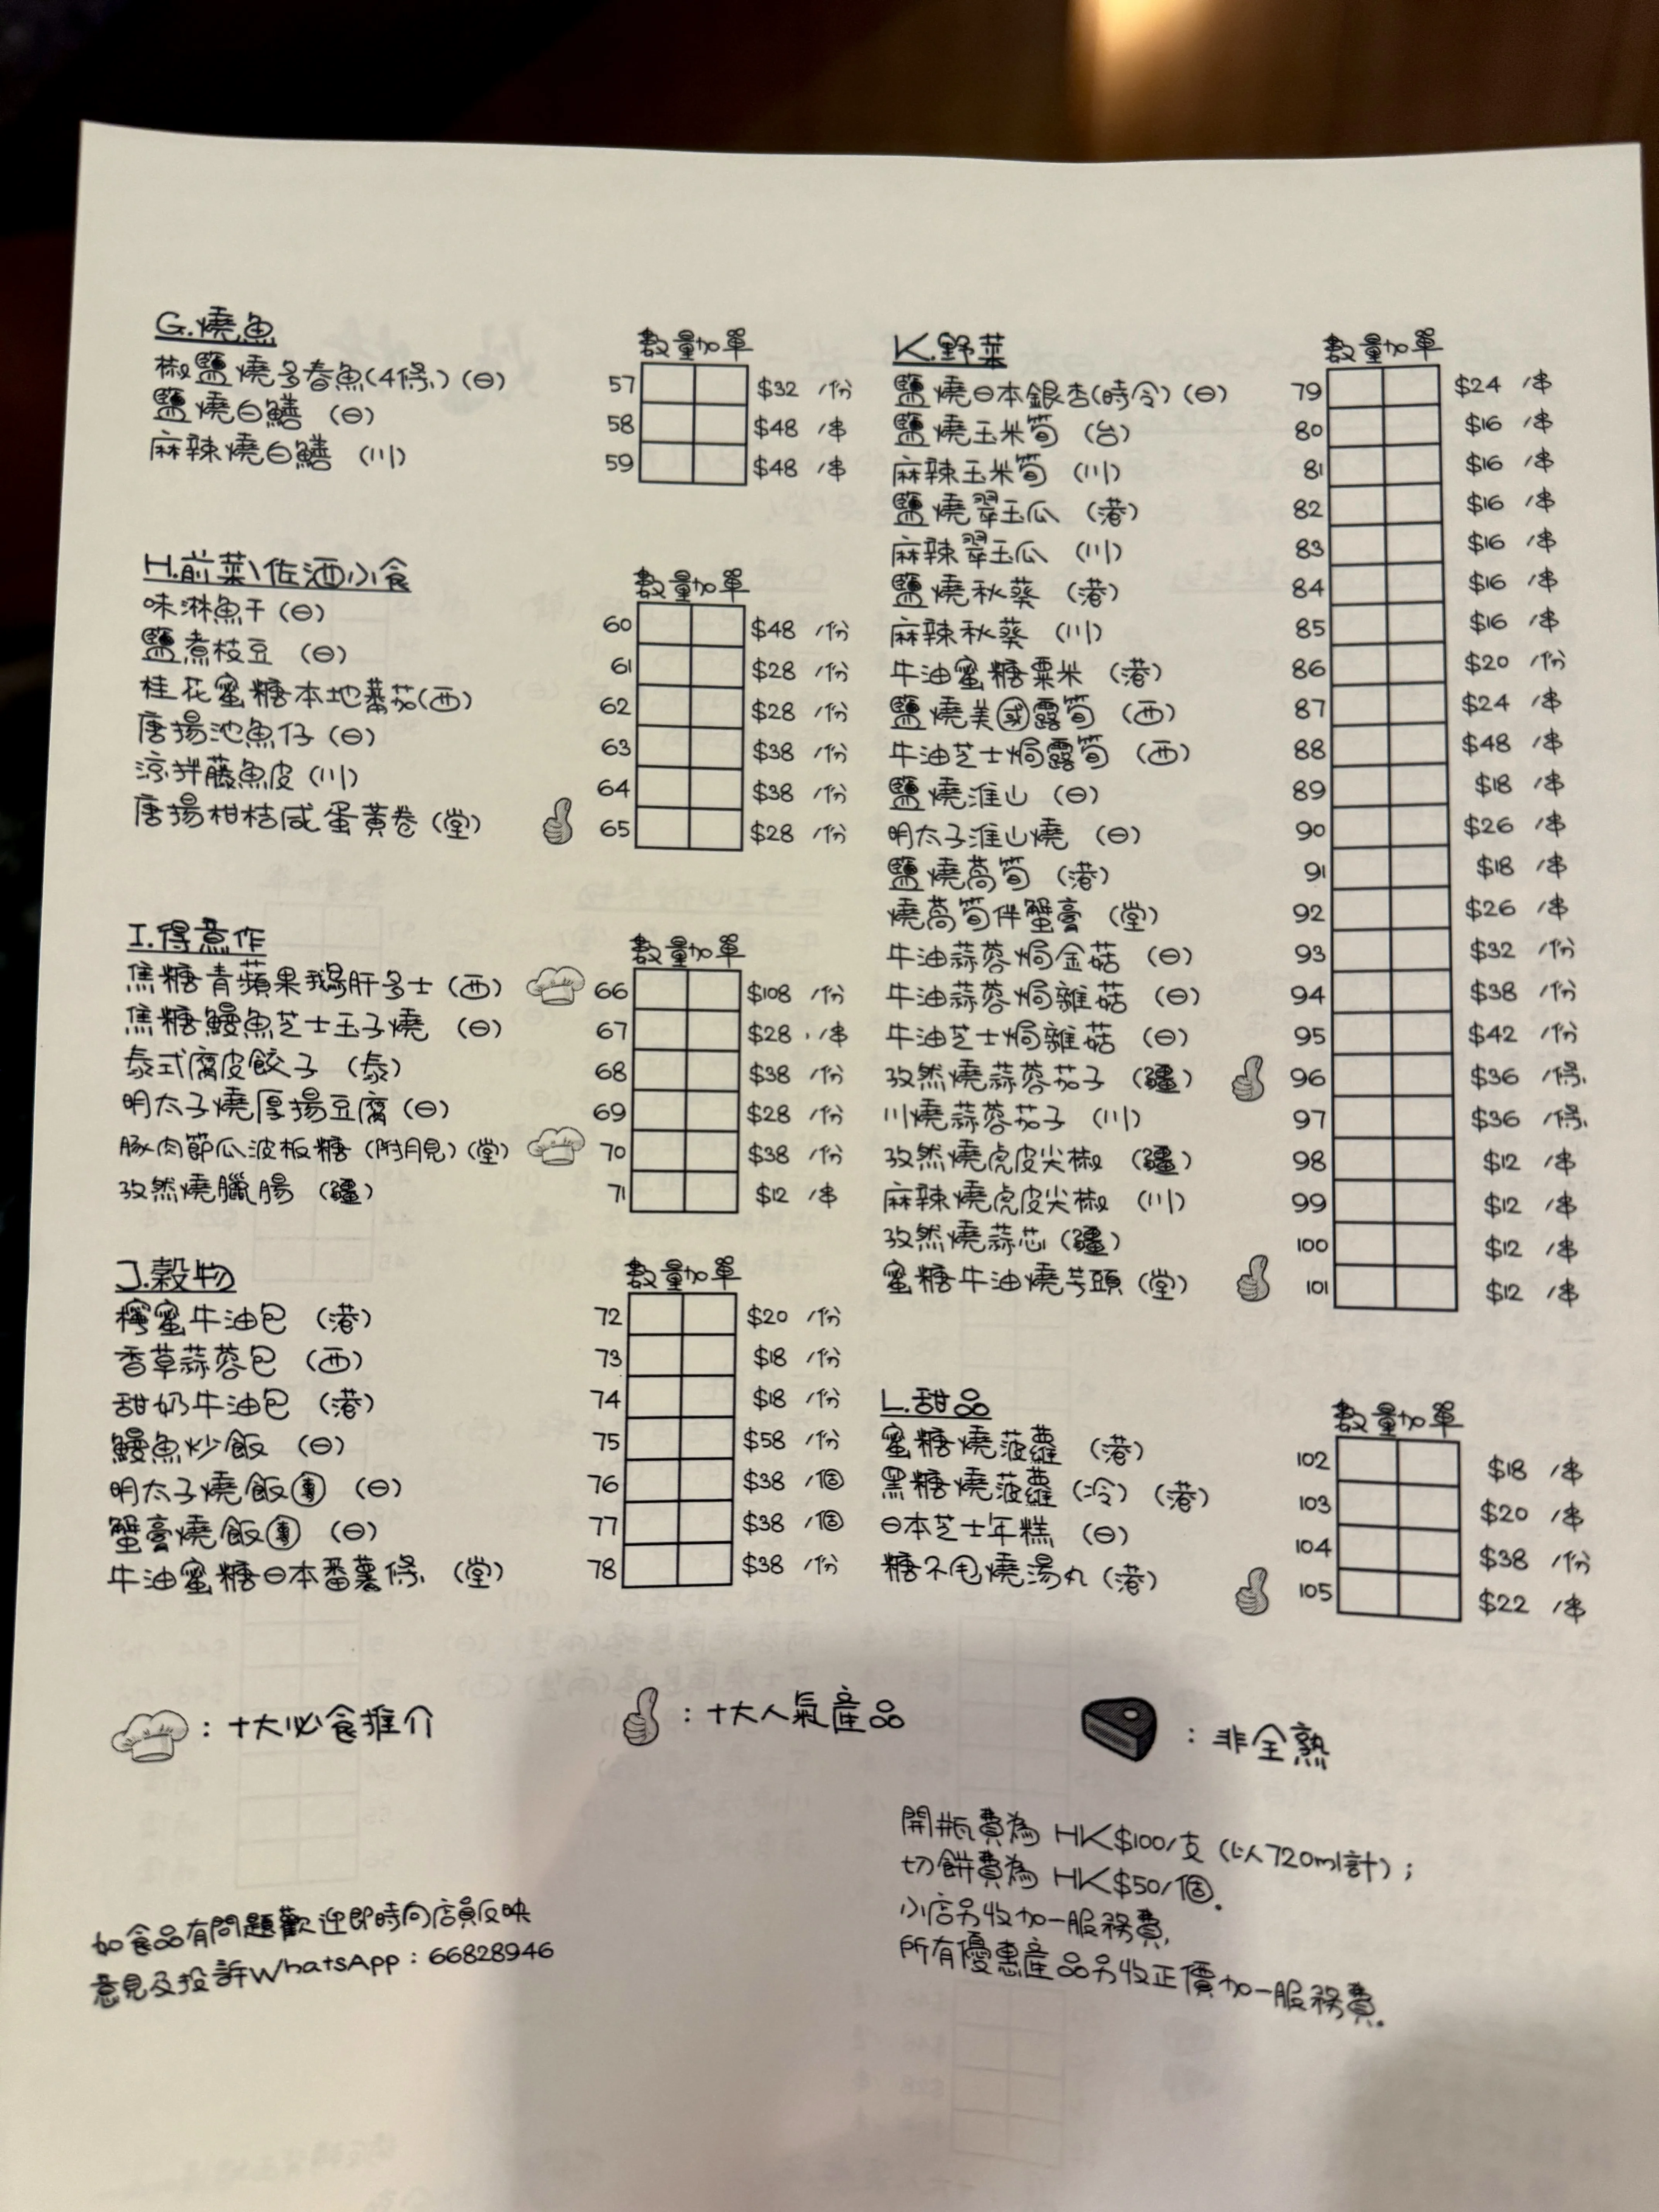 G.燒魚
數量加單
椒鹽燒多春魚(4條)(日) 57 $32 /份
鹽燒白鱔 (日) 58 $48 /串
麻辣燒白鱔 (川) 59 $48 /串
H.前菜\佐酒小食
數量加單
味淋魚干(日) 60 $48 /份
鹽煮枝豆 (日) 61 $28 /份
桂花蜜糖本地蕃茄(西) 62 $28 /份
唐揚池魚仔(日) 63 $38 /份
涼拌藤魚皮(川) 64 $38 /份
唐揚柑桔咸蛋黃卷(堂) 65 $28 /份
I.得意作
數量加單
焦糖青蘋果鵝肝多士(西) 66 $108 /份
焦糖鰻魚芝士玉子燒 (日) 67 $28 /串
泰式腐皮餃子 (泰) 68 $38 /份
明太子燒厚揚豆腐(日) 69 $28 /份
豚肉節瓜波板糖(附月見)(堂) 70 $38 /份
孜然燒臘腸 (疆) 71 $12 /串
J.穀物
數量加單
檸蜜牛油包 (港) 72 $20 /份
香草蒜蓉包 (西) 73 $18 /份
甜奶牛油包 (港) 74 $18 /份
鰻魚炒飯 (日) 75 $58 /份
明太子燒飯團 (日) 76 $38 /個
蟹膏燒飯團 (日) 77 $38 /個
牛油蜜糖日本番薯條 (堂) 78 $38 /份
K.野菜
數量加單
鹽燒日本銀杏(時令)(日) 79 $24 /串
鹽燒玉米筍 (台) 80 $16 /串
麻辣玉米筍 (川) 81 $16 /串
鹽燒翠玉瓜 (港) 82 $16 /串
麻辣翠玉瓜 (川) 83 $16 /串
鹽燒秋葵 (港) 84 $16 /串
麻辣秋葵 (川) 85 $16 /串
牛油蜜糖粟米 (港) 86 $20 /份
鹽燒美國露筍 (西) 87 $24 /串
牛油芝士焗露筍 (西) 88 $48 /串
鹽燒淮山 (日) 89 $18 /串
明太子淮山燒 (日) 90 $26 /串
鹽燒萵筍 (港) 91 $18 /串
燒萵筍伴蟹膏 (堂) 92 $26 /串
牛油蒜蓉焗金菇 (日) 93 $32 /份
牛油蒜蓉焗雜菇 (日) 94 $38 /份
牛油芝士焗雜菇 (日) 95 $42 /份
孜然燒蒜蓉茄子 (疆) 96 $36 /條
川燒蒜蓉茄子 (川) 97 $36 /條
孜然燒虎皮尖椒 (疆) 98 $12 /串
麻辣燒虎皮尖椒 (川) 99 $12 /串
孜然燒蒜芯 (疆) 100 $12 /串
蜜糖牛油燒芋頭(堂) 101 $12 /串
L.甜品
數量加單
蜜糖燒菠蘿 (港) 102 $18 /串
黑糖燒菠蘿(冷)(港) 103 $20 /串
日本芝士年糕 (日) 104 $38 /份
糖不甩燒湯丸(港) 105 $22 /串
:十大必食推介
:十大人氣產品
:非全熟
如食品有問題歡迎即時向店員反映
意見及投訴WhatsApp:66828946
開瓶費為 HK$100/支 (以720ml計);
切餅費為 HK$50/個.
小店另收加一服務費,
所有優惠產品另收正價加一服務費.